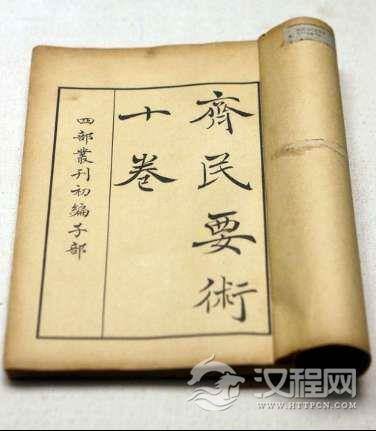 齊民要術
十卷
四部叢刊初編子部
汉程网
WWW.HTTPCN.COM